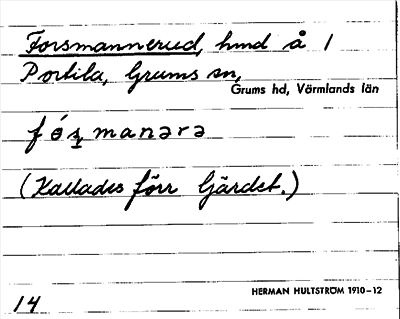 Forsmannerud, hmd å 1
Portila, Grums sn,
Grums hd, Värmlands län
fó𝑠manərə
(Kallades förr Gärdet.)
HERMAN HULTSTRÖM 1910-12
14